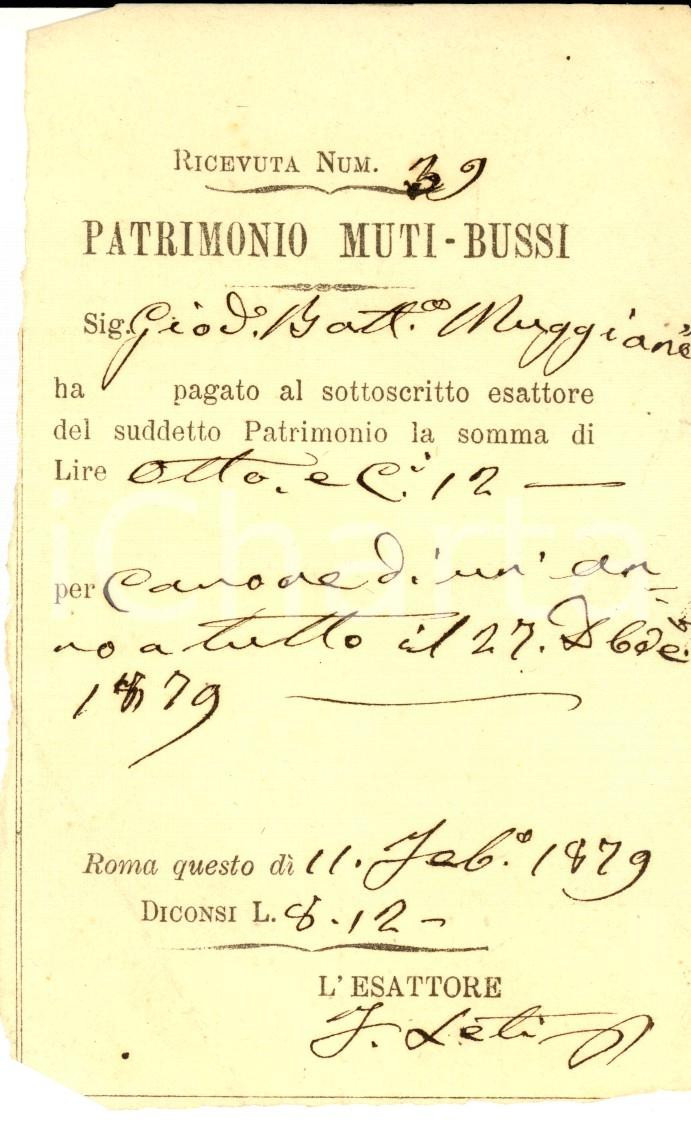 RICEVUTA NUM. 39
PATRIMONIO MUTI-BUSSI
Sig. Giod. Batt.a Muggiani
ha pagato al sottoscritto esattore
del suddetto Patrimonio la somma di
Lire Otto. e C.i 12 —
per Canone di un' an-
no a tutto il 27. Dbde
1879
Roma questo dì 11. Feb.o 1879
DICONSI L. 8.12 -
L'ESATTORE
F. Leti
iCharta